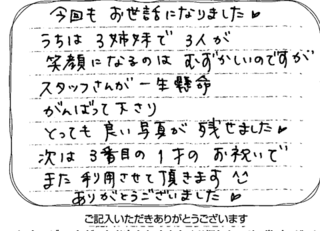 今回も お世話になりました♥
うちは 3姉妹で 3人が
笑顔になるのは むずかしいのですが
スタッフさんが一生懸命
がんばって下さり
とっても 良い写真が 残せました♥
次は 3番目の 1才の お祝いで
また 利用させて頂きます
ありがとうございました♥
ご記入いただきありがとうございます